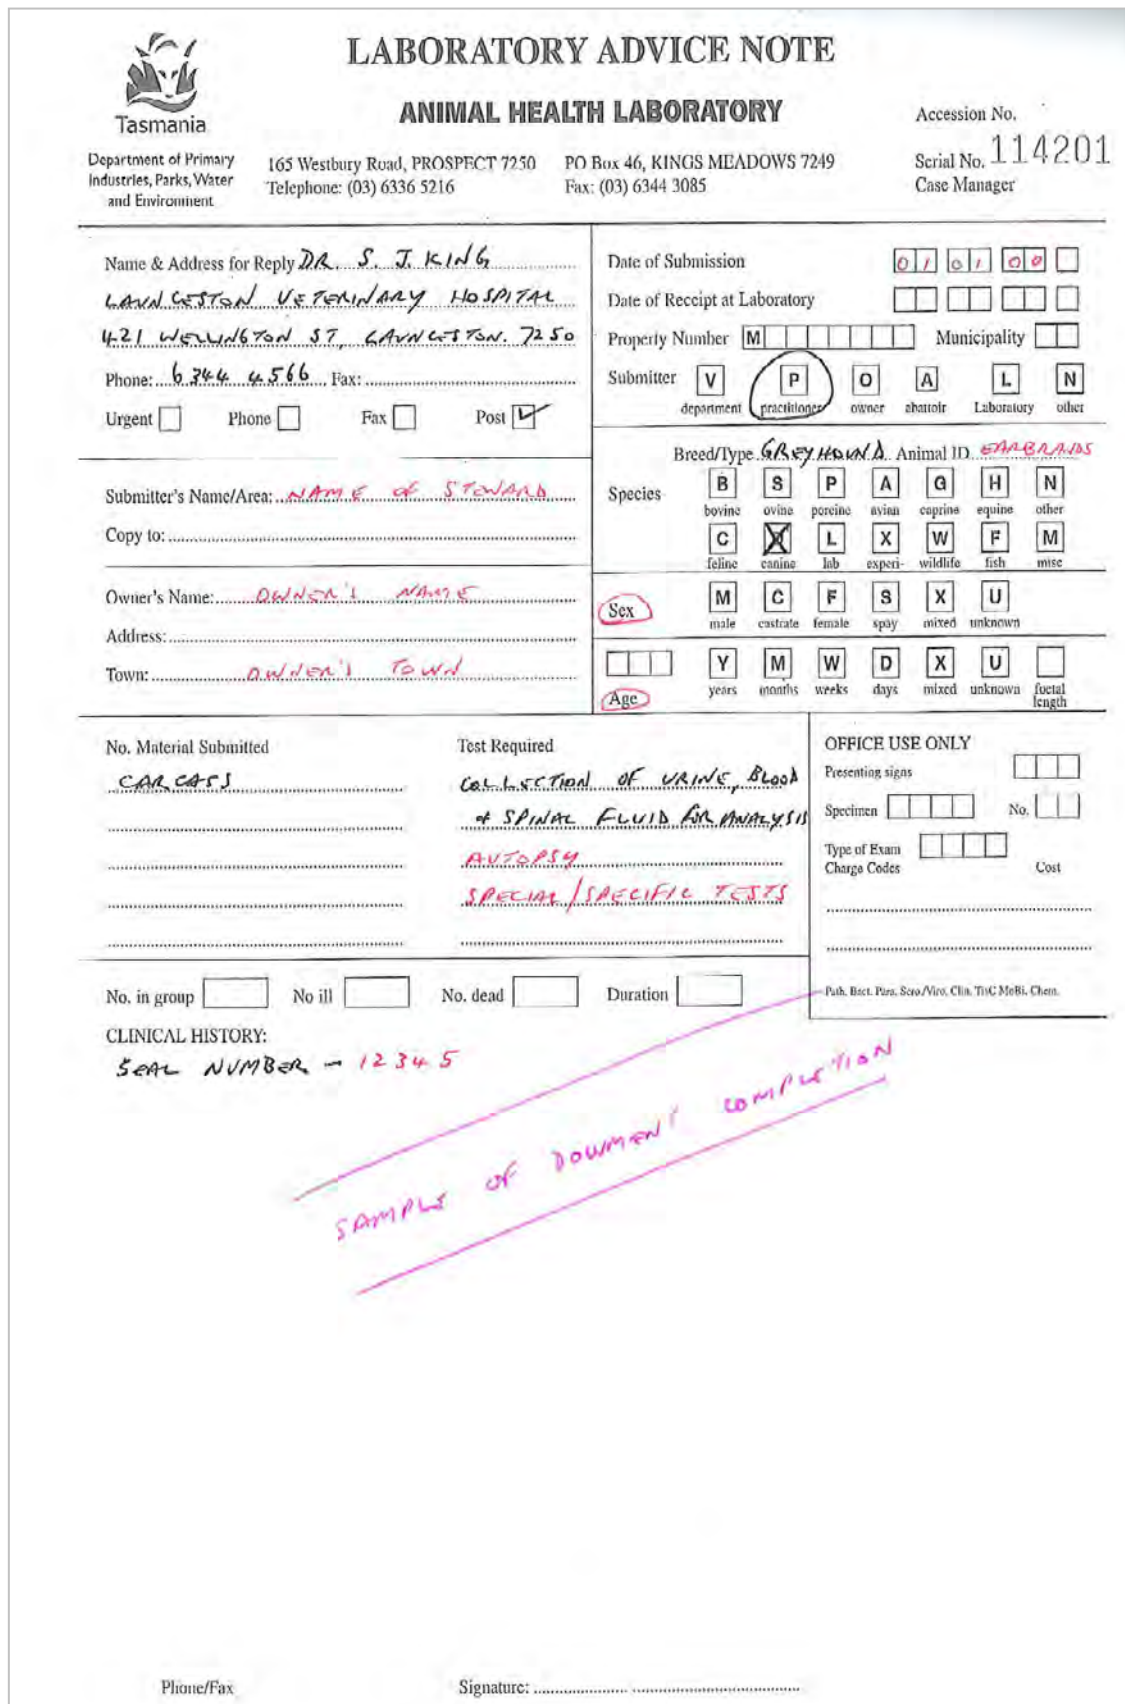 LABORATORY ADVICE NOTE
ANIMAL HEALTH LABORATORY
Tasmania
Department of Primary
Industries, Parks, Water
and Environment
165 Westbury Road, PROSPECT 7250 PO Box 46, KINGS MEADOWS 7249
Telephone: (03) 6336 5216 Fax: (03) 6344 3085
Accession No.
Serial No. 114201
Case Manager
Name & Address for Reply DR. S. J. KING
LAUNCESTON VETERINARY HOSPITAL
421 WELLINGTON ST, LAUNCESTON. 7250
Phone: 6344 4566 Fax:
Urgent Phone Fax Post
Submitter's Name/Area: NAME OF STEWARD
Copy to:
Owner's Name: OWNER'S NAME
Address:
Town: OWNER'S TOWN
Date of Submission 01 01 00
Date of Receipt at Laboratory
Property Number M Municipality
Submitter V P O A L N
department practitioner owner abattoir Laboratory other
Breed/Type GREYHOUND Animal ID EARBRANDS
Species B S P A G H N
bovine ovine porcine avian caprine equine other
C L X W F M
feline canine lab experi- wildlife fish misc
Sex M C F S X U
male castrate female spay mixed unknown
Y M W D X U
Age years months weeks days mixed unknown foetal
length
No. Material Submitted Test Required
CARCASS COLLECTION OF URINE, BLOOD
& SPINAL FLUID FOR ANALYSIS
AUTOPSY
SPECIAL/SPECIFIC TESTS
OFFICE USE ONLY
Presenting signs
Specimen No.
Type of Exam
Charge Codes Cost
Path. Bact. Para. Sero./Viro. Clin. TisC MoBi. Chem.
No. in group No ill No. dead Duration
CLINICAL HISTORY:
SEAL NUMBER - 12345
SAMPLE OF DOCUMENT COMPLETION
Phone/Fax Signature: